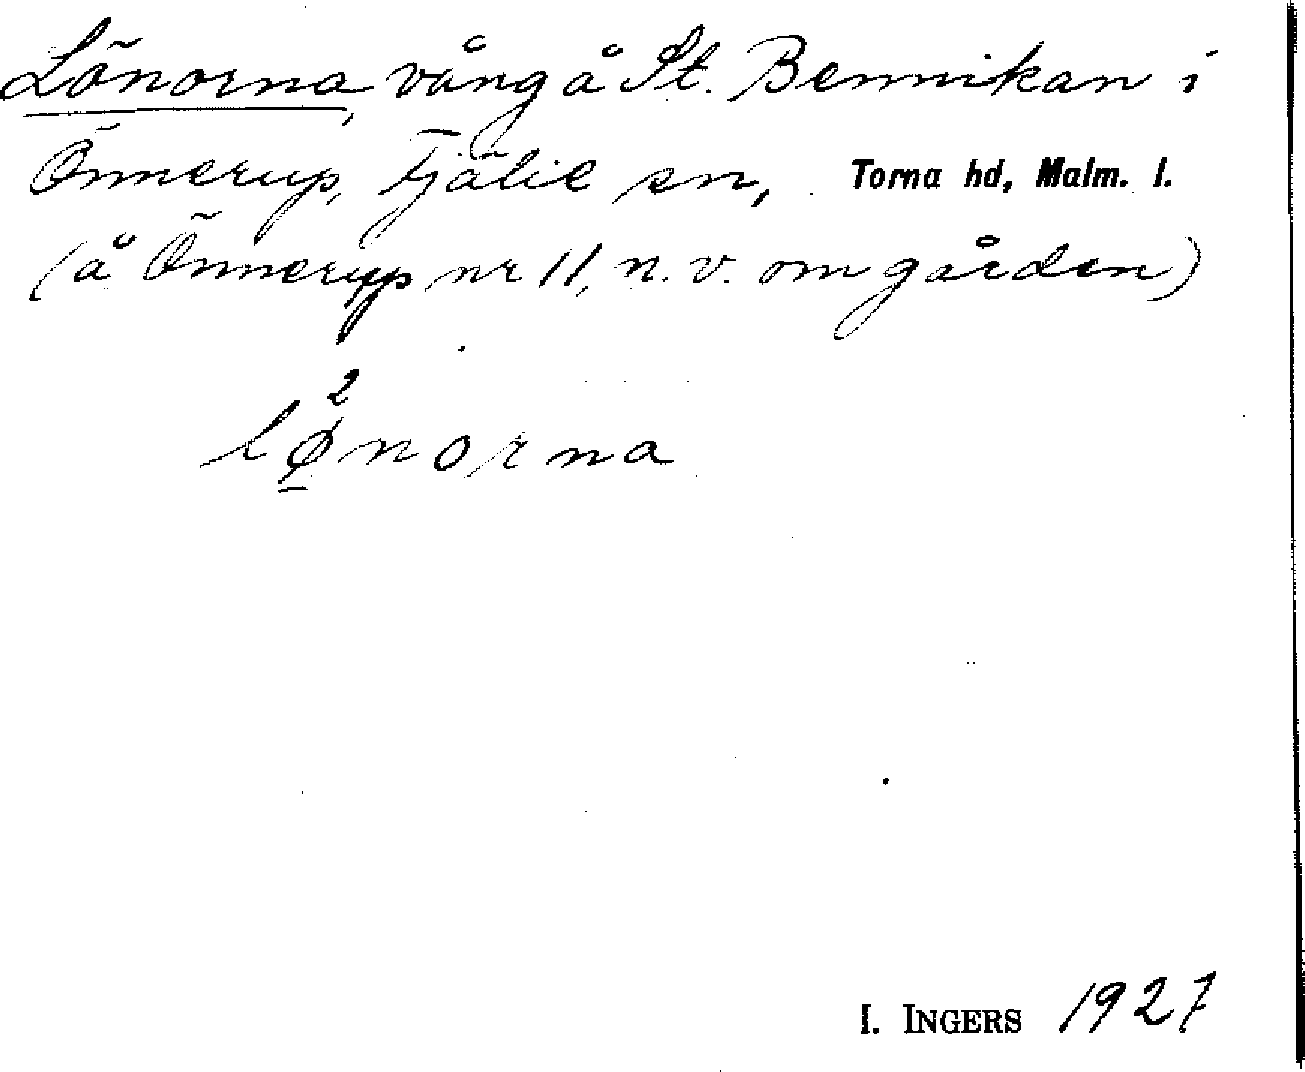 Lönorna, vång å St. Bennikan i
Önnerup, Fjälie sn, Torna hd, Malm. l.
(å Önnerup nr 11, n. v. om gården)
lø̱²norna
I. INGERS 1927